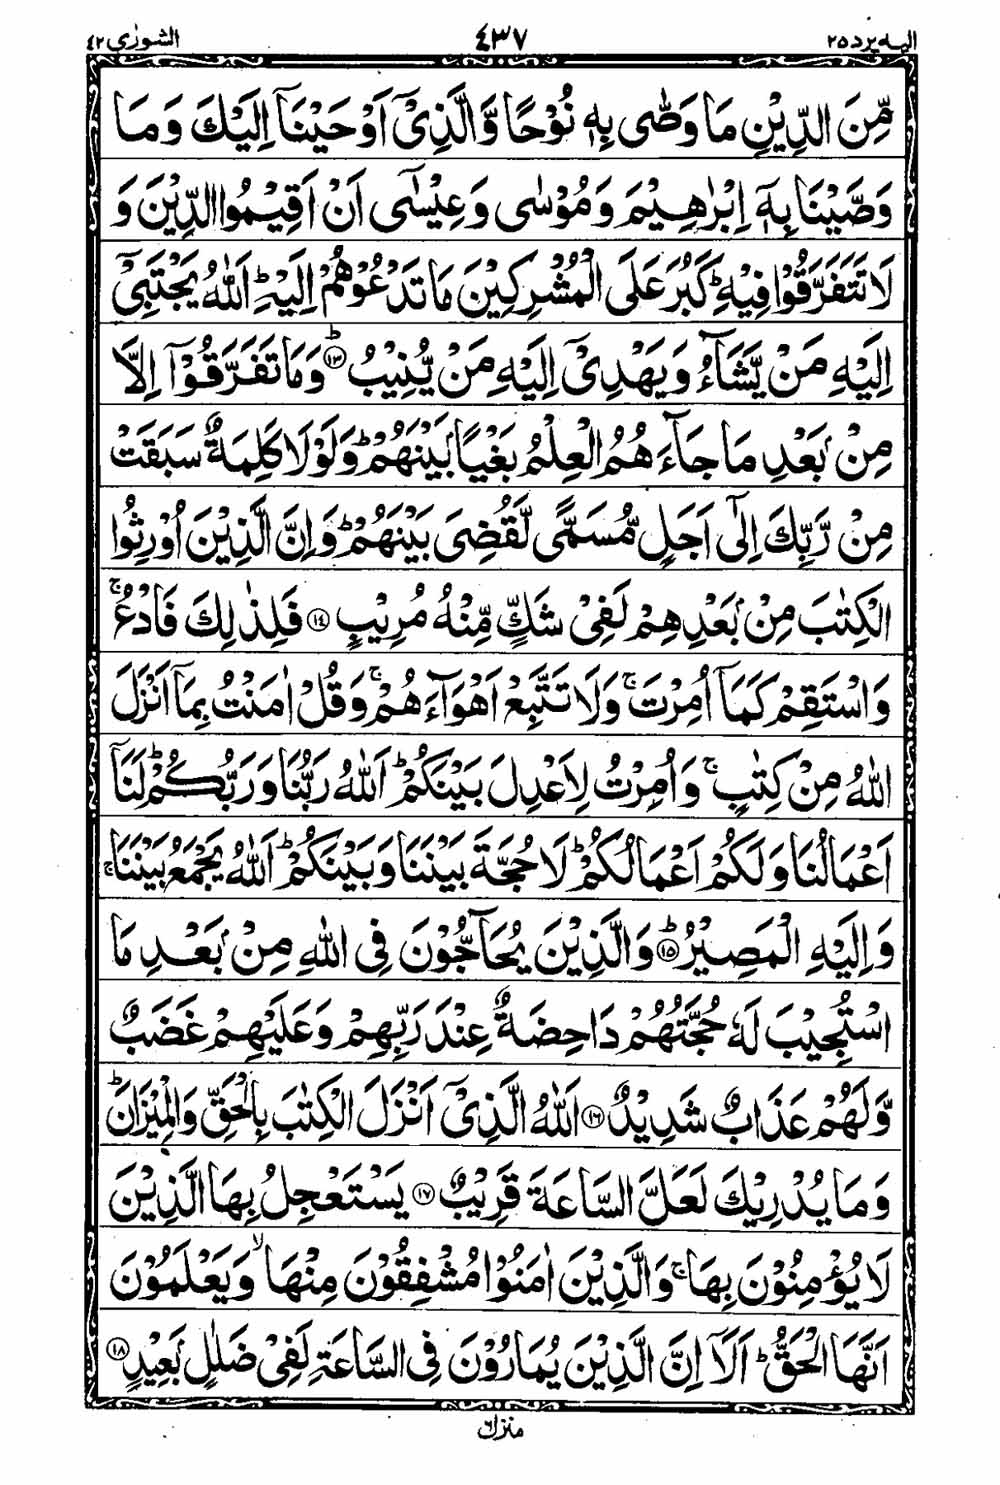 اليه يرد ٢٥ ٤٣٧ الشورٰى ٤٢
مِّنَ الدِّيْنِ مَا وَصّٰى بِهٖ نُوْحًا وَّالَّذِيْٓ اَوْحَيْنَآ اِلَيْكَ وَمَا
وَصَّيْنَا بِهٖٓ اِبْرٰهِيْمَ وَمُوْسٰى وَعِيْسٰٓى اَنْ اَقِيْمُوا الدِّيْنَ وَ
لَا تَتَفَرَّقُوْا فِيْهِ ؕ كَبُرَ عَلَى الْمُشْرِكِيْنَ مَا تَدْعُوْهُمْ اِلَيْهِ ؕ اَللّٰهُ يَجْتَبِيْٓ
اِلَيْهِ مَنْ يَّشَآءُ وَيَهْدِيْٓ اِلَيْهِ مَنْ يُّنِيْبُ ؕ ١٣ وَمَا تَفَرَّقُوْٓا اِلَّا
مِنْۢ بَعْدِ مَا جَآءَهُمُ الْعِلْمُ بَغْيًاۢ بَيْنَهُمْ ؕ وَلَوْلَا كَلِمَةٌ سَبَقَتْ
مِنْ رَّبِّكَ اِلٰٓى اَجَلٍ مُّسَمًّى لَّقُضِيَ بَيْنَهُمْ ؕ وَاِنَّ الَّذِيْنَ اُوْرِثُوا
الْكِتٰبَ مِنْۢ بَعْدِهِمْ لَفِيْ شَكٍّ مِّنْهُ مُرِيْبٍ ١٤ فَلِذٰلِكَ فَادْعُ ۚ
وَاسْتَقِمْ كَمَآ اُمِرْتَ ۚ وَلَا تَتَّبِعْ اَهْوَآءَهُمْ ۚ وَقُلْ اٰمَنْتُ بِمَآ اَنْزَلَ
اللّٰهُ مِنْ كِتٰبٍ ۚ وَاُمِرْتُ لِاَعْدِلَ بَيْنَكُمْ ؕ اَللّٰهُ رَبُّنَا وَرَبُّكُمْ ؕ لَنَآ
اَعْمَالُنَا وَلَكُمْ اَعْمَالُكُمْ ؕ لَا حُجَّةَ بَيْنَنَا وَبَيْنَكُمْ ؕ اَللّٰهُ يَجْمَعُ بَيْنَنَا ۚ
وَاِلَيْهِ الْمَصِيْرُ ؕ ١٥ وَالَّذِيْنَ يُحَآجُّوْنَ فِي اللّٰهِ مِنْۢ بَعْدِ مَا
اسْتُجِيْبَ لَهٗ حُجَّتُهُمْ دَاحِضَةٌ عِنْدَ رَبِّهِمْ وَعَلَيْهِمْ غَضَبٌ
وَّلَهُمْ عَذَابٌ شَدِيْدٌ ١٦ اَللّٰهُ الَّذِيْٓ اَنْزَلَ الْكِتٰبَ بِالْحَقِّ وَالْمِيْزَانَ ؕ
وَمَا يُدْرِيْكَ لَعَلَّ السَّاعَةَ قَرِيْبٌ ١٧ يَسْتَعْجِلُ بِهَا الَّذِيْنَ
لَا يُؤْمِنُوْنَ بِهَا ۚ وَالَّذِيْنَ اٰمَنُوْا مُشْفِقُوْنَ مِنْهَا ۙ وَيَعْلَمُوْنَ
اَنَّهَا الْحَقُّ ؕ اَلَآ اِنَّ الَّذِيْنَ يُمَارُوْنَ فِي السَّاعَةِ لَفِيْ ضَلٰلٍۢ بَعِيْدٍ ١٨
منزل ٦